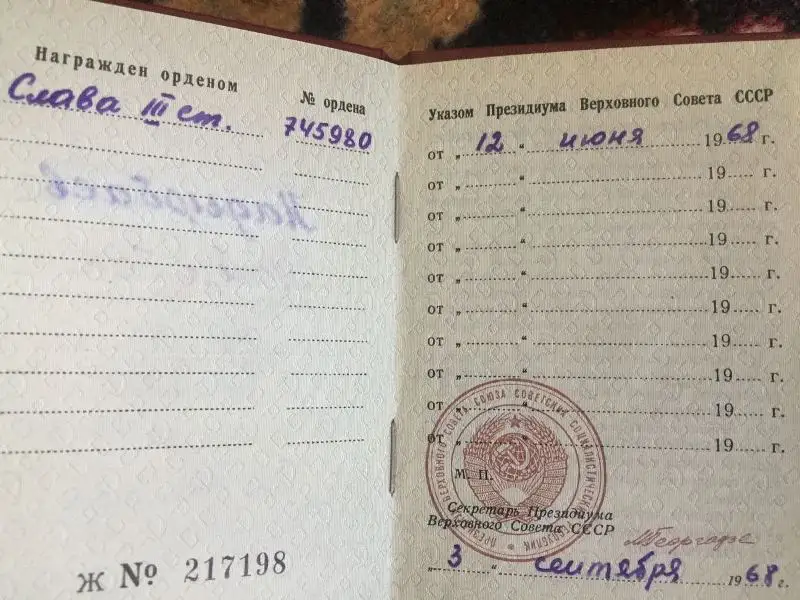 Награжден орденом
№ ордена
Слава III ст.
745980
Ж № 217198
Указом Президиума Верховного Совета СССР
от „ 12 “ июня 1968 г.
от „ “ 19 г.
от „ “ 19 г.
от „ “ 19 г.
от „ “ 19 г.
от „ “ 19 г.
от „ “ 19 г.
от „ “ 19 г.
от „ “ 19 г.
от „ “ 19 г.
М. П.
Секретарь Президиума
Верховного Совета СССР
МГеоргадзе
„ 3 “ сентября 1968 г.